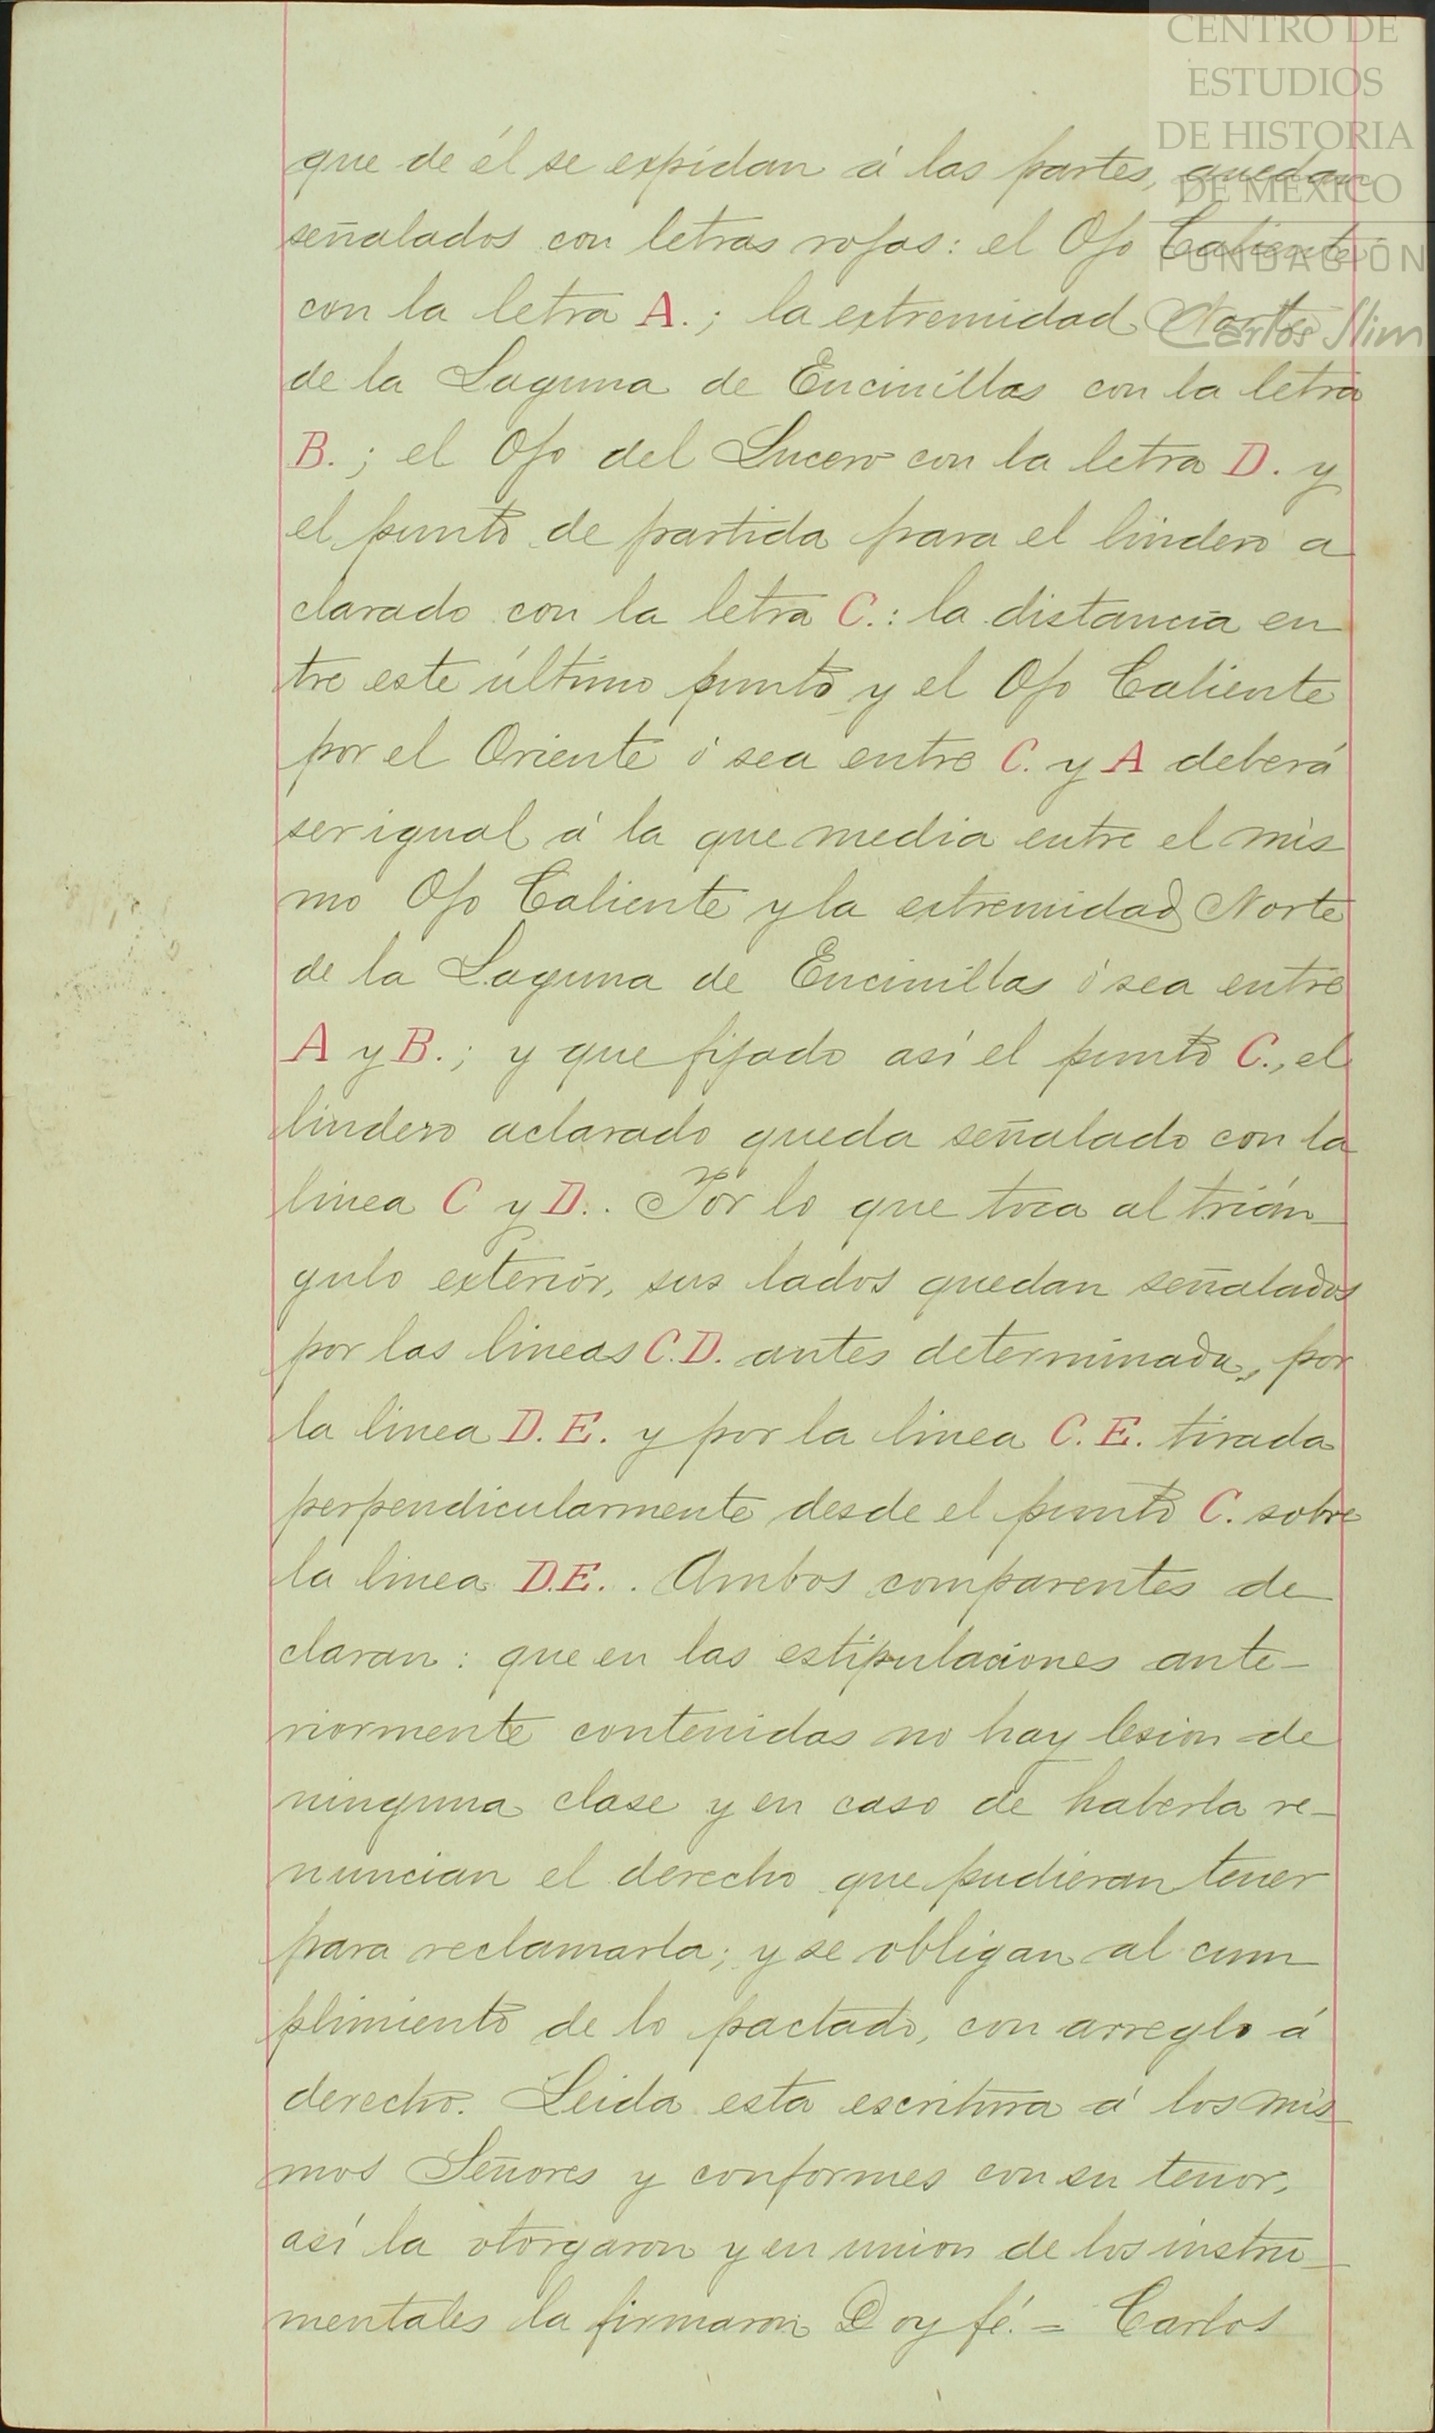 CENTRO DE
ESTUDIOS
DE HISTORIA
DE MÉXICO
FUNDACIÓN
Carlos Slim
que de él se expidan á las partes, quedan
señalados con letras rojas: el Ojo Caliente
con la letra A.; la extremidad Norte
de la Laguna de Encinillas con la letra
B.; el Ojo del Lucero con la letra D. y
el punto de partida para el lindero a
clarado con la letra C.: la distancia en
tre este último punto y el Ojo Caliente
por el Oriente ó sea entre C. y A deberá
ser igual á la que media entre el mis
mo Ojo Caliente y la extremidad Norte
de la Laguna de Encinillas ó sea entre
A y B.; y que fijado así el punto C., el
lindero aclarado queda señalado con la
linea C y D.. Por lo que toca al trián
gulo exterior, sus lados quedan señalados
por las lineas C.D. antes determinada, por
la linea D.E. y por la linea C.E. tirada
perpendicularmente desde el punto C. sobre
la linea D.E.. Ambos comparentes de
claran: que en las estipulaciones ante-
riormente contenidas no hay lesion de
ninguna clase y en caso de haberla re-
nuncian el derecho que pudieran tener
para reclamarla; y se obligan al cum
plimiento de lo pactado, con arreglo á
derecho. Leida esta escritura á los mis
mos Señores y conformes con su tenor,
así la otorgaron y en union de los instru-
mentales la firmaron Doy fé. = Carlos